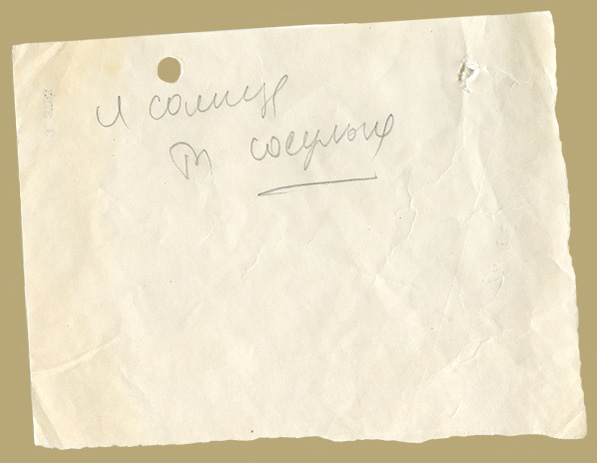 и солнце
в сосульках